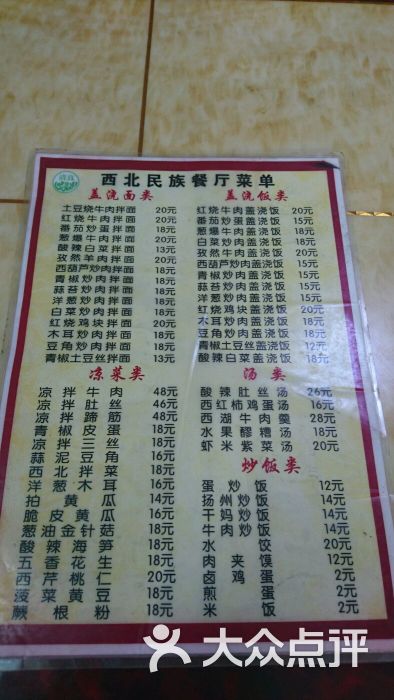 清真
西北民族餐厅菜单
盖浇面类
土豆烧牛肉拌面 20元
红烧牛肉拌面 20元
番茄炒蛋拌面 18元
葱爆牛肉拌面 20元
酸辣白菜拌面 13元
孜然羊肉拌面 20元
西葫芦炒肉拌面 18元
青椒炒肉拌面 18元
蒜苔炒肉拌面 18元
洋葱炒肉拌面 18元
白菜炒肉拌面 18元
红烧鸡块拌面 20元
木耳炒肉拌面 18元
豆角炒肉拌面 18元
青椒土豆丝拌面 13元
盖浇饭类
红烧牛肉盖浇饭 20元
番茄炒蛋盖浇饭 15元
葱爆牛肉盖浇饭 18元
白菜炒肉盖浇饭 15元
孜然牛肉盖浇饭 20元
西葫芦炒肉盖浇饭 15元
青椒炒肉盖浇饭 15元
蒜苔炒肉盖浇饭 15元
洋葱炒肉盖浇饭 15元
红烧鸡块盖浇饭 18元
木耳炒肉盖浇饭 18元
豆角炒肉盖浇饭 18元
青椒土豆丝盖浇饭 12元
酸辣白菜盖浇饭 18元
凉菜类
凉拌牛肉 48元
凉拌肚丝 46元
凉拌蹄筋 48元
青椒皮蛋 18元
凉拌三丝 18元
蒜泥豆角 16元
西北拌菜 18元
洋葱木耳 16元
拍黄瓜 14元
脆皮黄瓜 14元
葱油金针菇 18元
酸辣海笋 18元
五香花生 18元
西芹桃仁 20元
菠菜黄豆 18元
蕨根粉 18元
汤类
酸辣肚丝汤 26元
西红柿鸡蛋汤 16元
西湖牛肉羹 28元
水果醪糟汤 18元
虾米紫菜汤 20元
炒饭类
蛋炒饭 12元
扬州炒饭 14元
干妈炒饭 14元
牛肉炒饭 14元
水饺 20元
肉夹馍 12元
卤鸡蛋 2元
煎蛋 2元
米饭 2元
大众点评